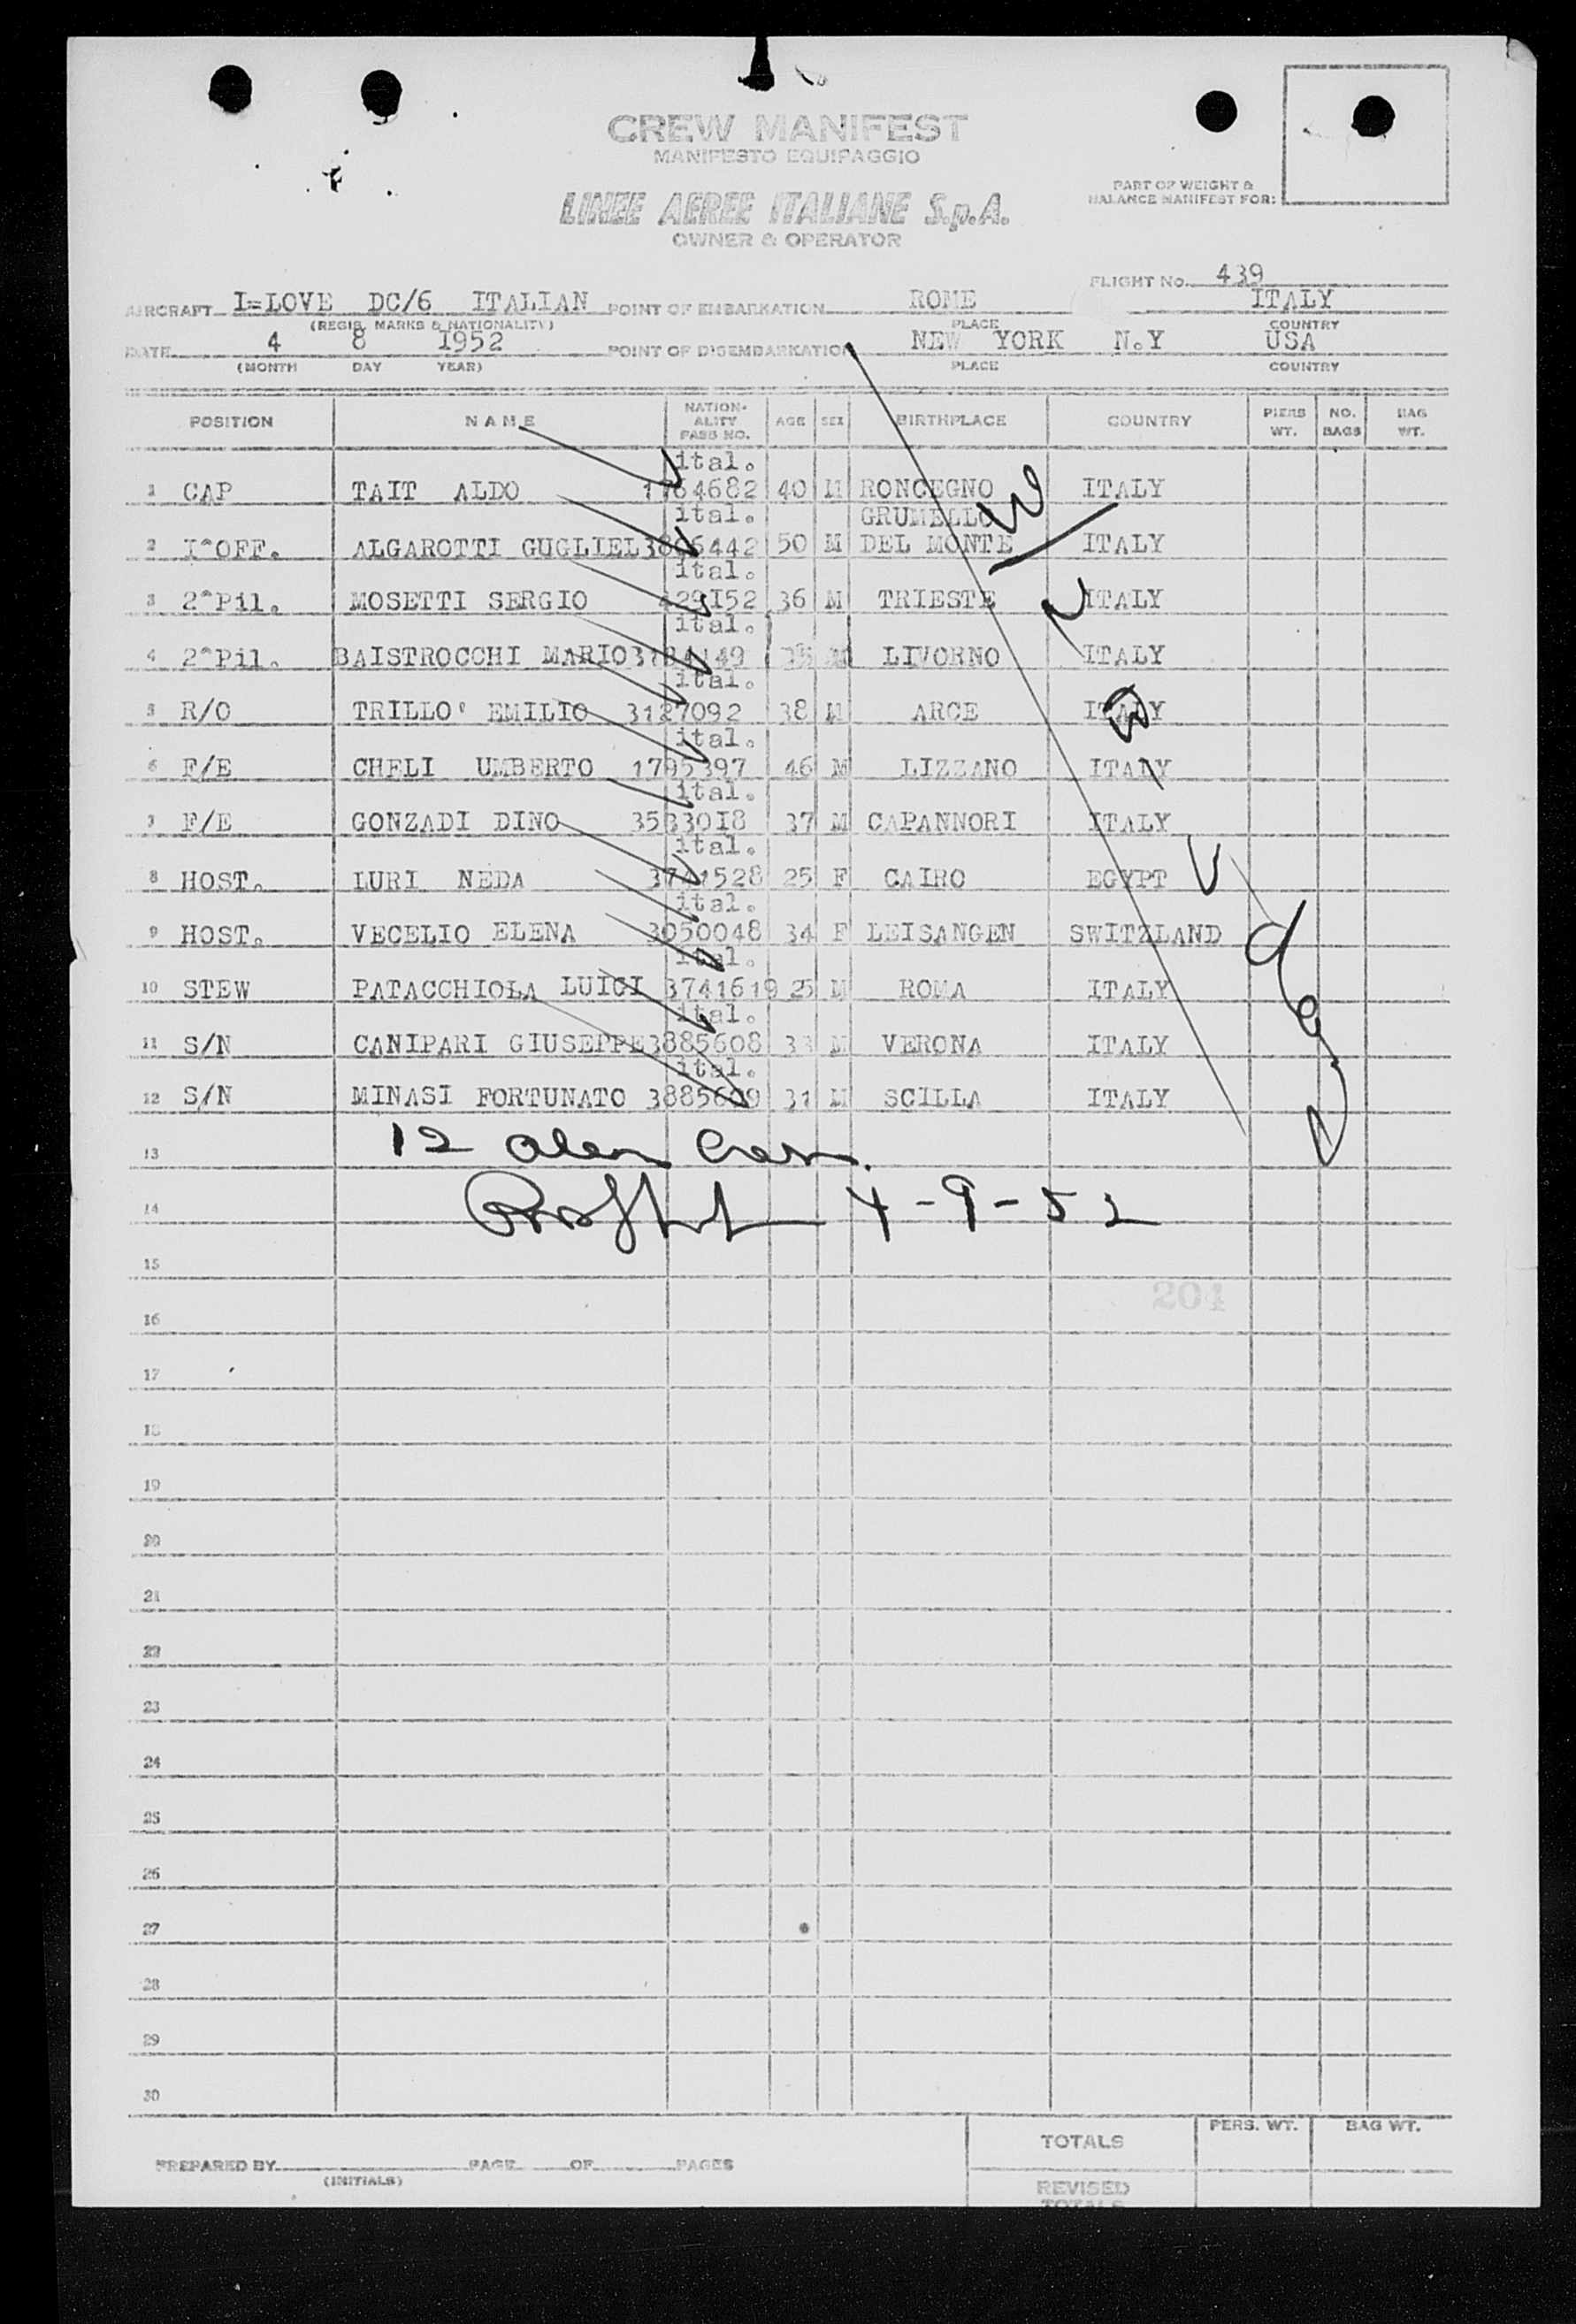 CREW MANIFEST
MANIFESTO EQUIPAGGIO
LINEE AEREE ITALIANE S.p.A.
OWNER & OPERATOR
PART OF WEIGHT &
BALANCE MANIFEST FOR:
FLIGHT No. 439
AIRCRAFT I=LOVE DC/6 ITALIAN POINT OF EMBARKATION ROME ITALY
(REGIS. MARKS & NATIONALITY) PLACE COUNTRY
DATE 4 8 1952 POINT OF DISEMBARKATION NEW YORK N.Y USA
(MONTH DAY YEAR) PLACE COUNTRY
POSITION NAME NATION-ALITY PASS NO. AGE SEX BIRTHPLACE COUNTRY PIERS WT. NO. BAGS BAG WT.
ital.
1 CAP TAIT ALDO 1764682 40 M RONCEGNO ITALY
ital. GRUMELLO
2 I^OFF. ALGAROTTI GUGLIEL 3806442 50 M DEL MONTE ITALY
ital.
3 2^Pil. MOSETTI SERGIO 36 M TRIESTE ITALY
ital.
4 2^Pil. BAISTROCCHI MARIO M LIVORNO ITALY
ital.
5 R/O TRILLO' EMILIO 3127092 38 M ARCE ITALY
ital.
6 F/E CHELI UMBERTO 1795397 46 M LIZZANO ITALY
ital.
7 F/E GONZADI DINO 3533018 37 M CAPANNORI ITALY
ital.
8 HOST. LURI NEDA 3741528 25 F CAIRO EGYPT
ital.
9 HOST. VECELIO ELENA 3050048 34 F LEISANGEN SWITZLAND
ital.
10 STEW PATACCHIOLA LUIGI 3741619 25 M ROMA ITALY
ital.
11 S/N CANIPARI GIUSEPPE 3885608 33 M VERONA ITALY
ital.
12 S/N MINASI FORTUNATO 3885609 31 M SCILLA ITALY
13 12 alien Crew
14 4-9-52
15
204
16
17
18
19
20
21
22
23
24
25
26
27
28
29
30
TOTALS PERS. WT. BAG WT.
PREPARED BY PAGE OF PAGES
(INITIALS)
REVISED
TOTALS